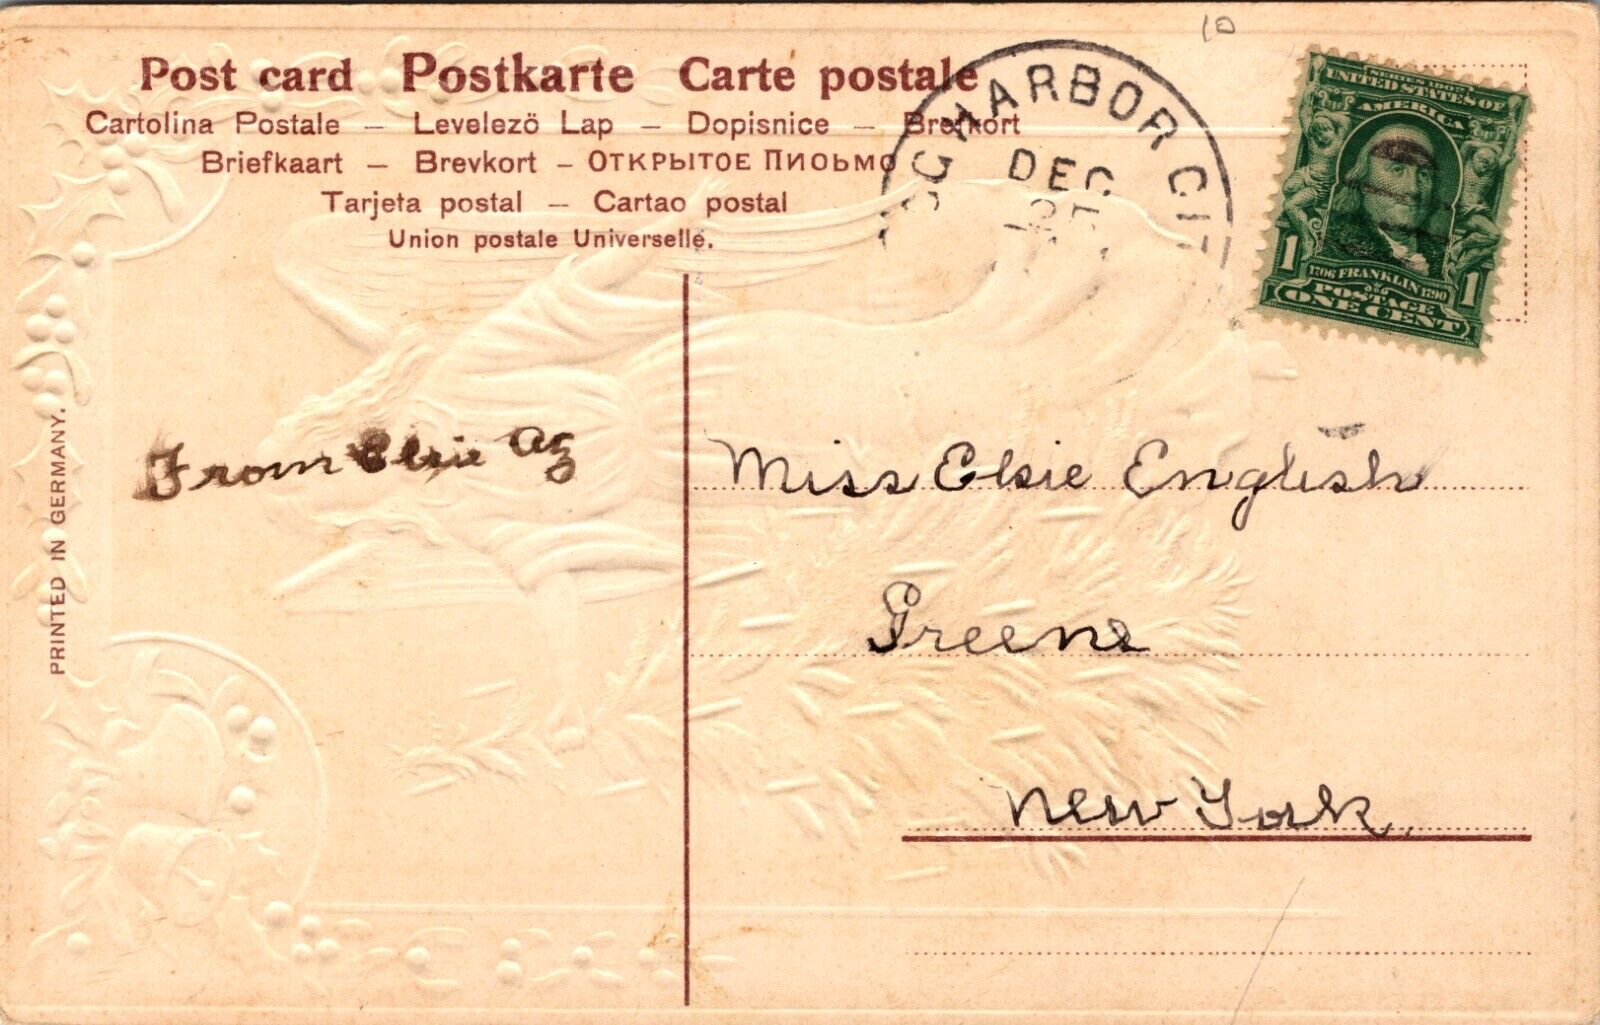 10
Post card Postkarte Carte postale
Cartolina Postale – Levelezö Lap – Dopisnice – Brefkort
Briefkaart – Brevkort – ОТКРЫТОЕ ПИОЬМО
Tarjeta postal – Cartao postal
Union postale Universelle.
HARBOR CI
DEC
SERIES 1902
UNITED STATES OF
AMERICA
1706 FRANKLIN 1790
1 POSTAGE 1
ONE CENT
From Elsie
Miss Elsie English
Greene
New York.
PRINTED IN GERMANY.